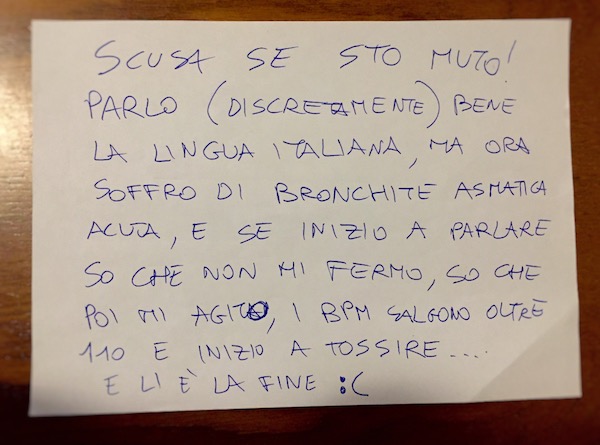 SCUSA SE STO MUTO!
PARLO (DISCRETAMENTE) BENE
LA LINGUA ITALIANA, MA ORA
SOFFRO DI BRONCHITE ASMATICA
ACUTA, E SE INIZIO A PARLARE
SO CHE NON MI FERMO, SO CHE
POI MI AGITO, I BPM SALGONO OLTRE
110 E INIZIO A TOSSIRE....
E LI È LA FINE :(